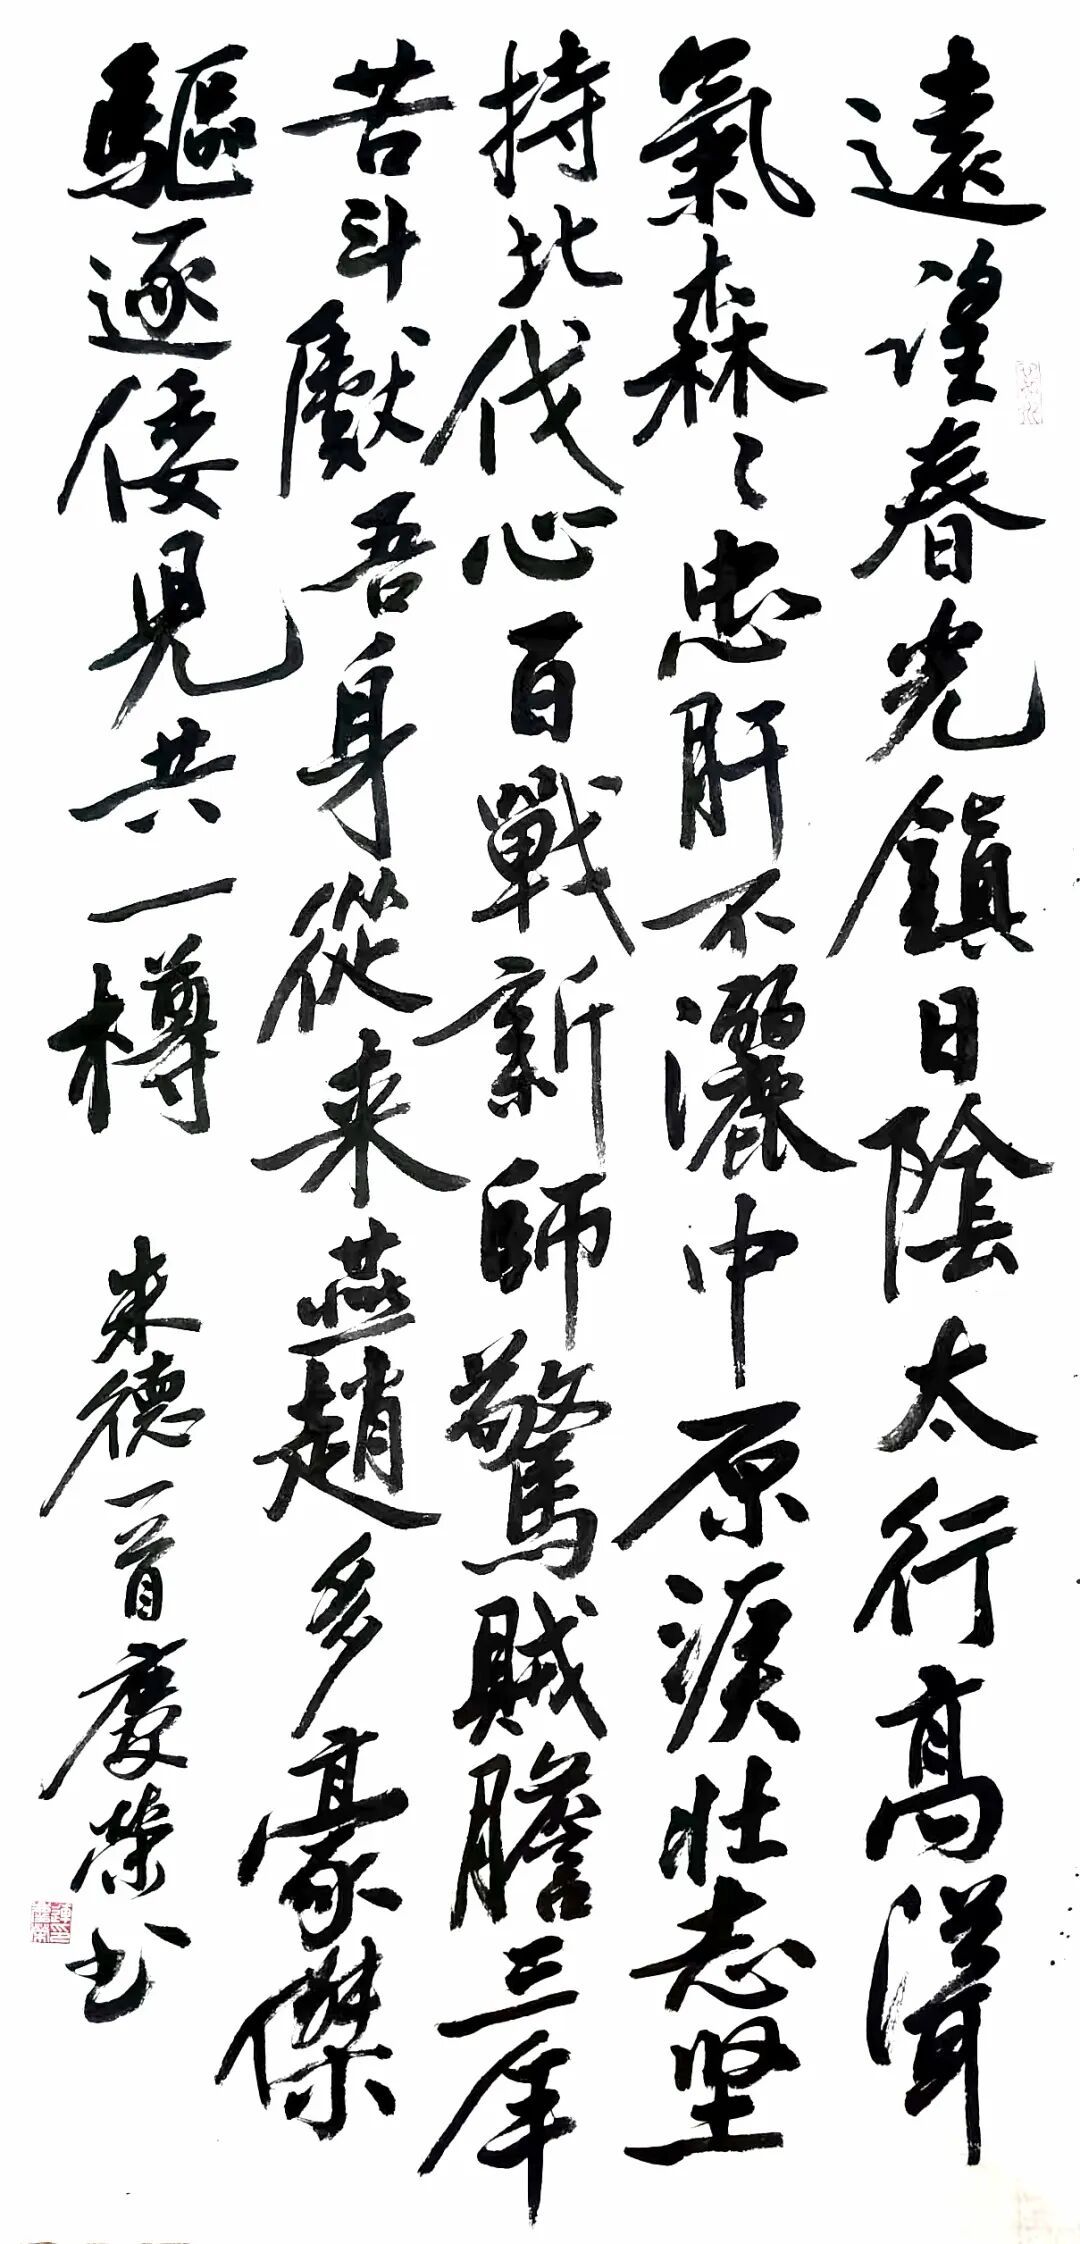 遠望春光鎮日陰太行高聳
氣森々忠肝不灑中原淚壯志坚
持北伐心百戰新師驚賊膽三年
苦斗獻吾身從来燕趙多豪傑
驅逐倭兒共一樽
朱德一首慶榮书